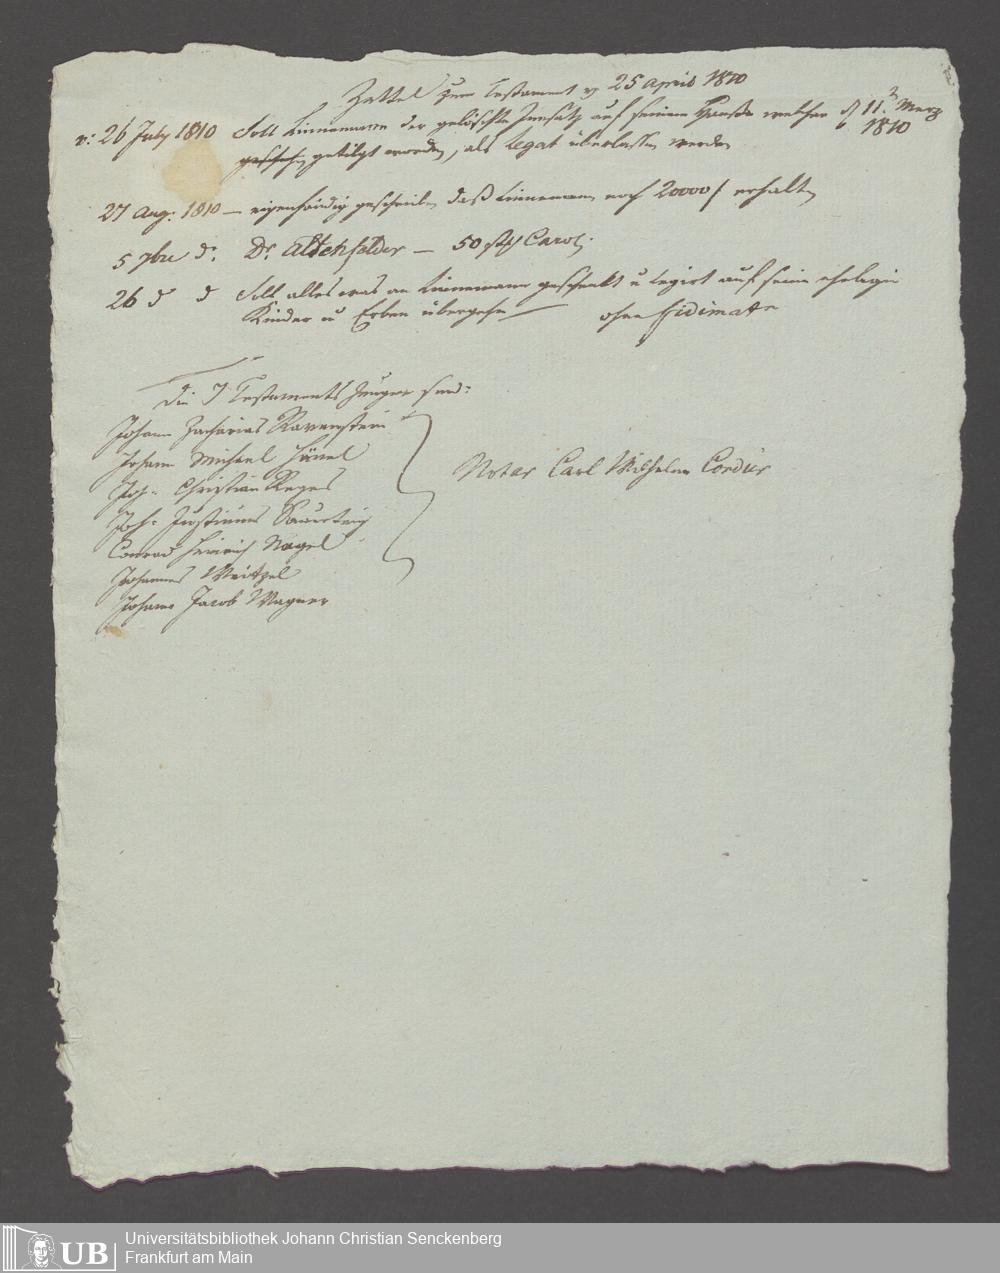 Zettel zum Testament v 25 April 1810
v: 26 July 1810 Soll Linnemann der gelöschte Insatz auf seinem Hause welcher d 11 Merz
1810
geschehen getilgt worden, als Legat überlassen werden
27 Aug: 1810 — eigenhändig geschrieben daß Linnemann noch 20000 f erhalten
5 7bre d: Dr. Altehfelder — 50 Carol:
26 d d Soll alles was an Linnemann geschenkt u legirt auf seine eheliche
Kinder u Erben übergehen — ohne
Die 7 Testaments Zeugen sind:
Johann Zacharias Ravenstein
Johann Michael Hänel
Joh: Christian Reges
Joh: Justinus
Conrad Heinrich Nagel
Johannes Weitzel
Johann Jacob Wagner
Notar Carl Wilhelm Cordier
UB
Universitätsbibliothek Johann Christian Senckenberg
Frankfurt am Main